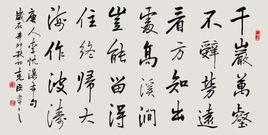 千巖萬壑
不辭勞遠
看方知出
處高溪澗
豈能留得
住終歸大
海作波濤
唐人李忱瀑布句